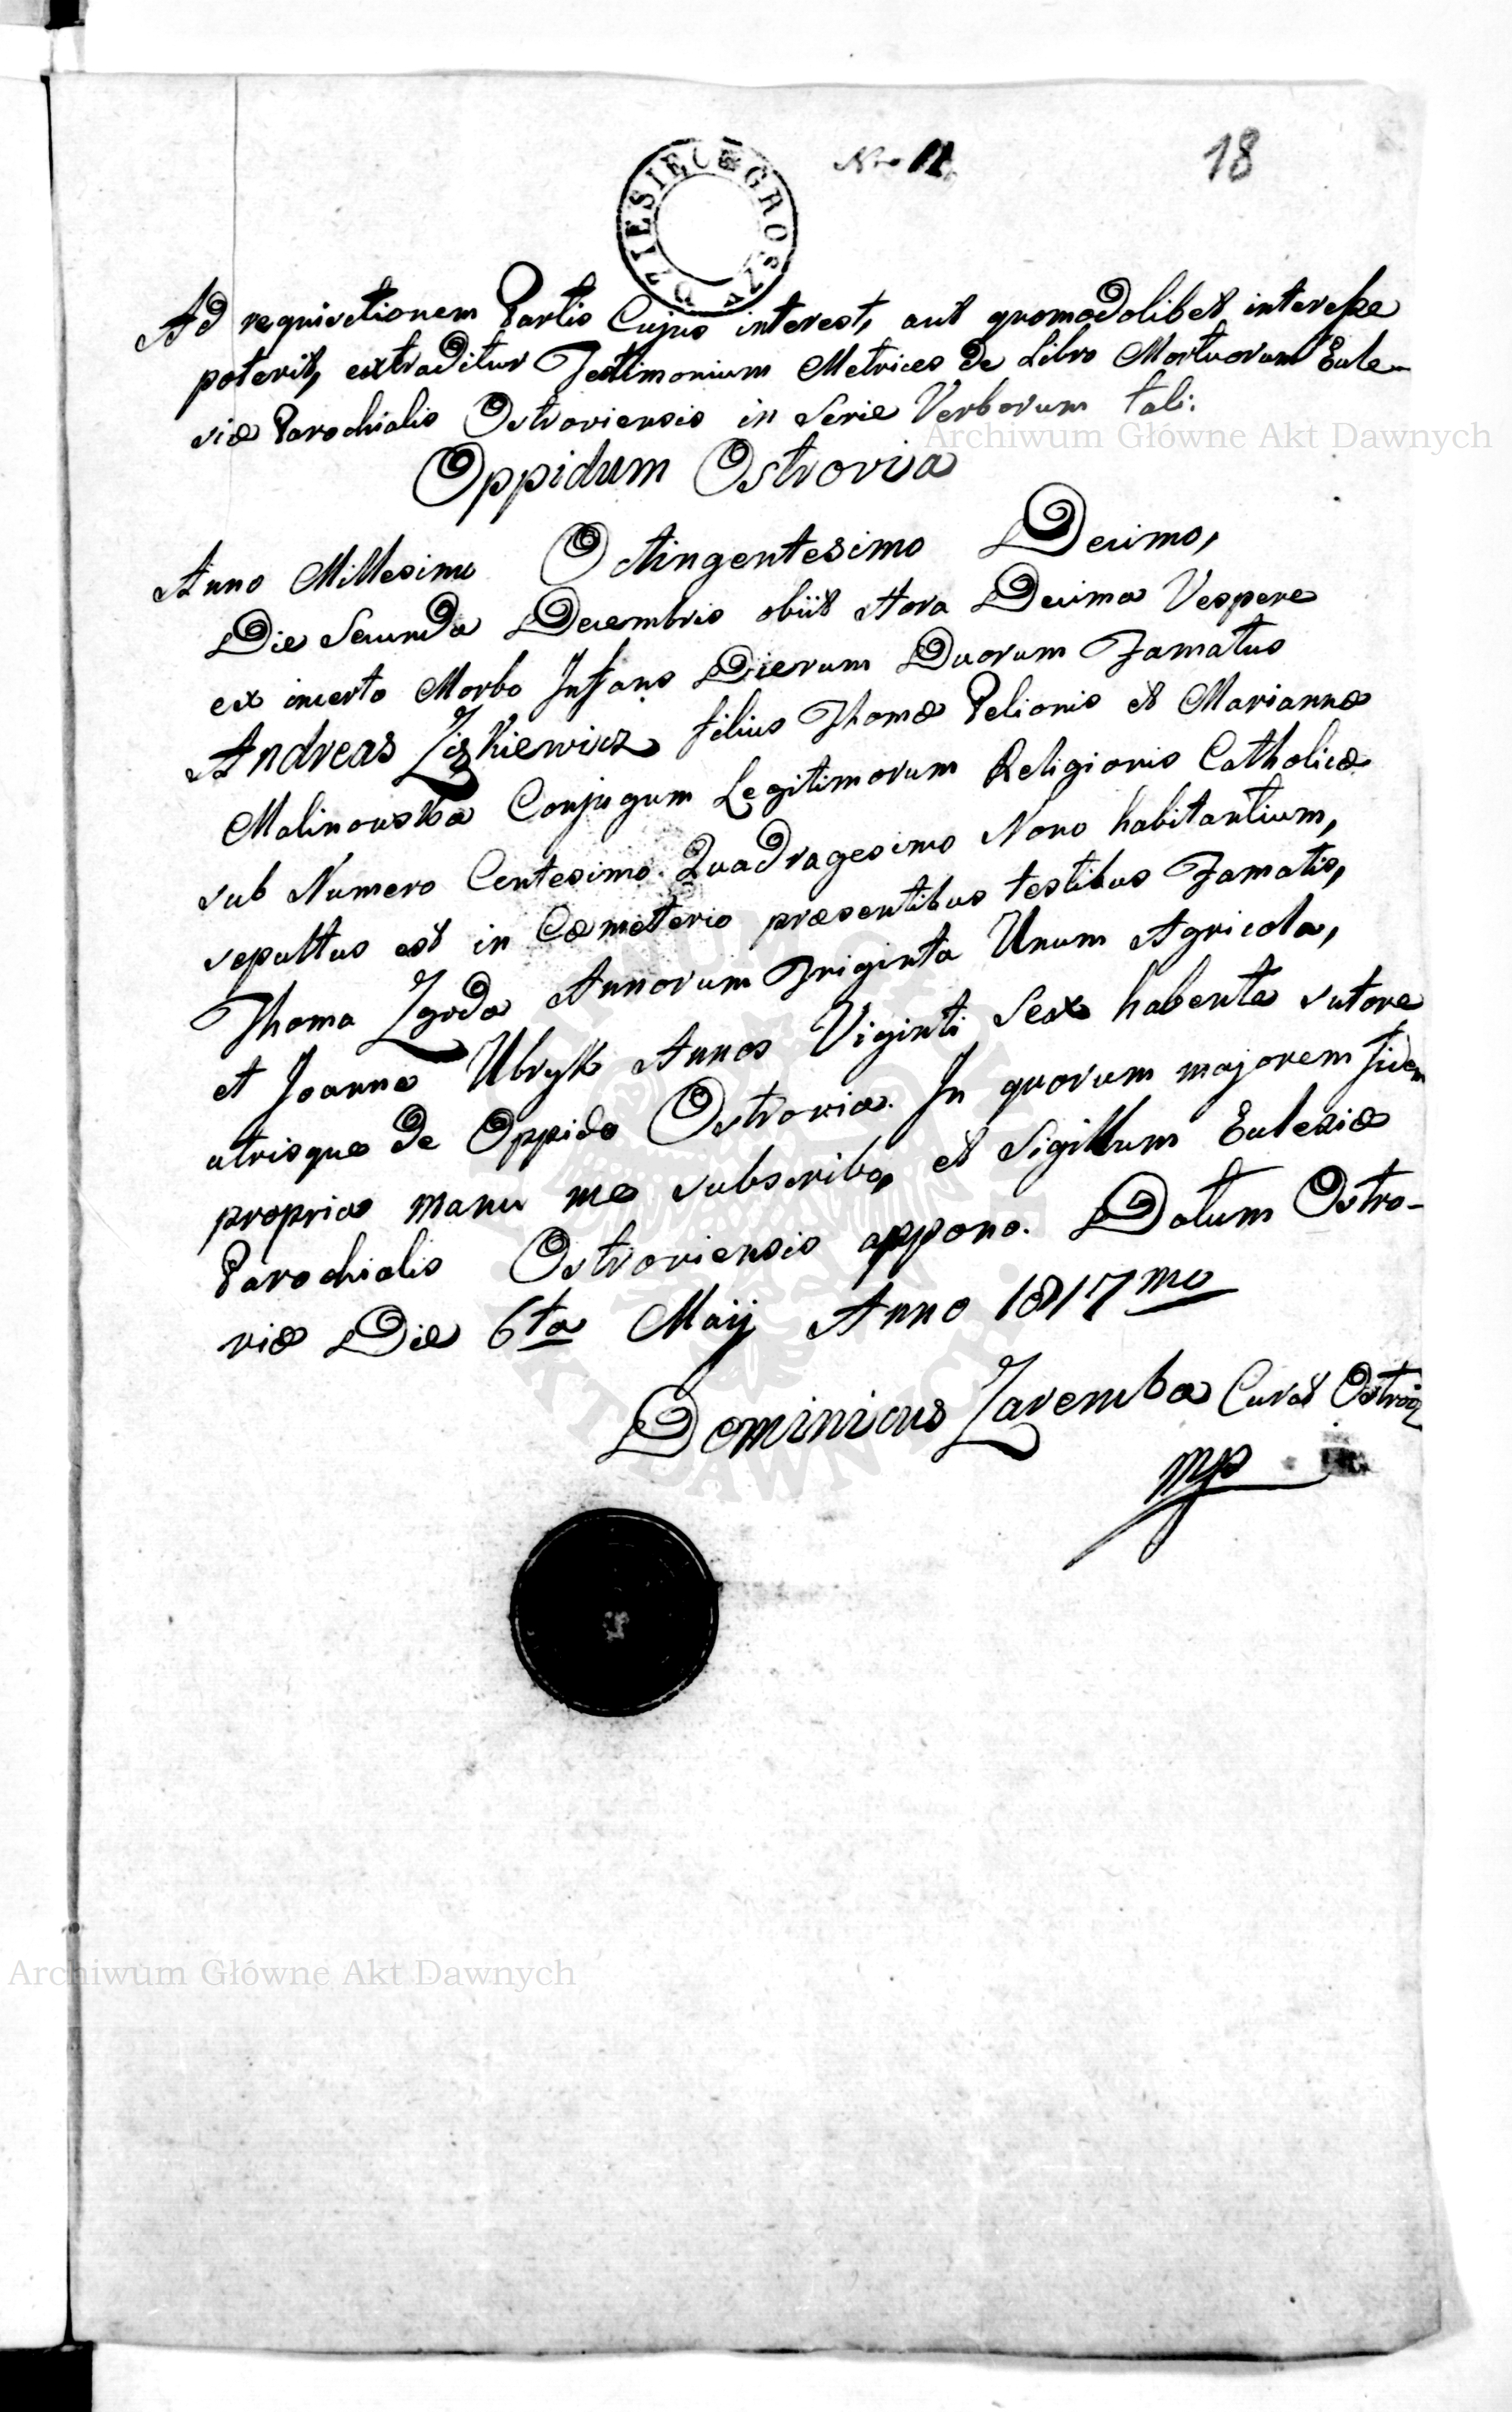 Nro 11.
18
DZIESIĘC GROSZY
Ad requisitionem Partis Cujus interest, aut quomodolibet interesse
poterit, extraditur Testimonium Metrices de Libro Mortuorum Eccle-
siæ Parochialis Ostroviensis in Serie Verborum tali.
Archiwum Główne Akt Dawnych
Oppidum Ostrovia
Anno Millesimo Octingentesimo Decimo,
Die Secunda Decembris obiit Hora Decima Vespere
ex incerto Morbo Infans Dierum Duorum Famatus
Andreas Ziszkiewicz filius Thomæ Pelionis et Mariannæ
Malinowska Conjugum Legitimorum Religionis Catholicæ
sub Numero Centesimo Quadragesimo Nono habitantium,
sepultus est in Cæmeterio præsentibus testibus Famatis,
Thoma Zgoda Annorum Triginta Unum Agricola,
et Joanne Ubryk Annos Viginti Sex habente sutore
utrisque de Oppido Ostrovia. In quorum majorem fidem
propria manu me subscribo, et Sigillum Ecclesiæ
Parochialis Ostroviensis appono. Datum Ostro-
viæ Die 6ta Maij Anno 1817mo
Dominicus Zaremba Curat
mp
Archiwum Główne Akt Dawnych